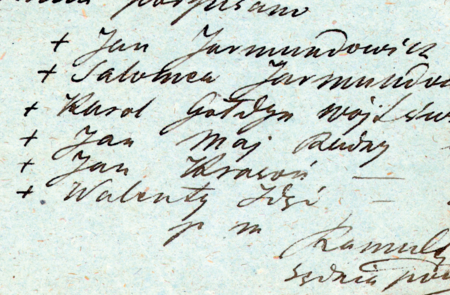 podpisano
+ Jan Jarmundowicz
+ Salomea Jarmundo
+ Karol Gołdyn wójt
+ Jan Maj Radny
+ Jan Krasoń —
+ Walenty Idzi —
p m
Ramuld
Sędzia po